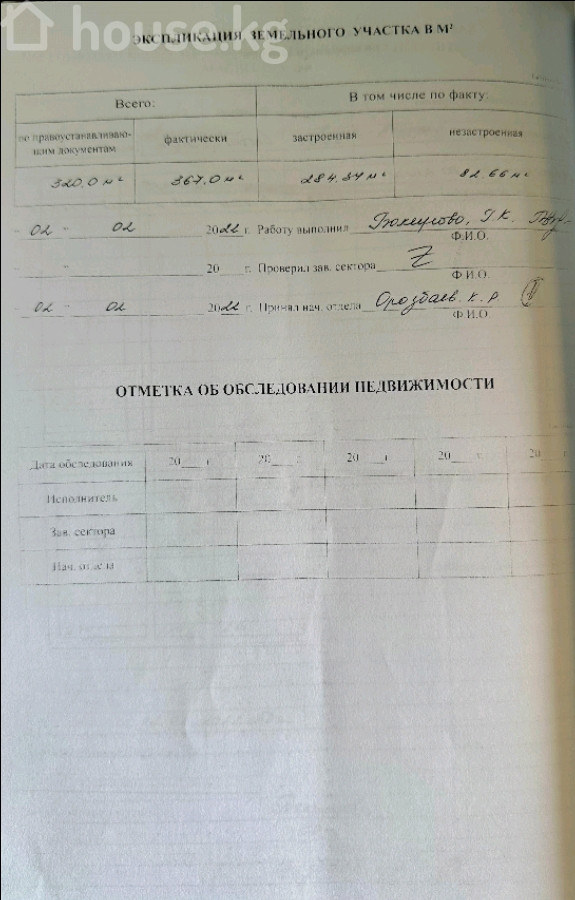 house.kg
ЭКСПЛИКАЦИЯ ЗЕМЕЛЬНОГО УЧАСТКА В М²
Всего: В том числе по факту:
по правоустанавливаю-
щим документам фактически застроенная незастроенная
320,0 м² 367,0 м² 284.34 м² 82.66 м²
" 02 " 02 2022 г. Работу выполнил Г.К.
Ф.И.О.
" " 20 г. Проверил зав. сектора Z
Ф.И.О.
" 02 " 02 2022 г. Принял нач. отдела Орозбаев. К.Р
Ф.И.О
ОТМЕТКА ОБ ОБСЛЕДОВАНИИ НЕДВИЖИМОСТИ
Дата обследования 20___ г 20___ г. 20___ г 20___ г. 20___ г
Исполнитель
Зав. сектора
Нач. отдела